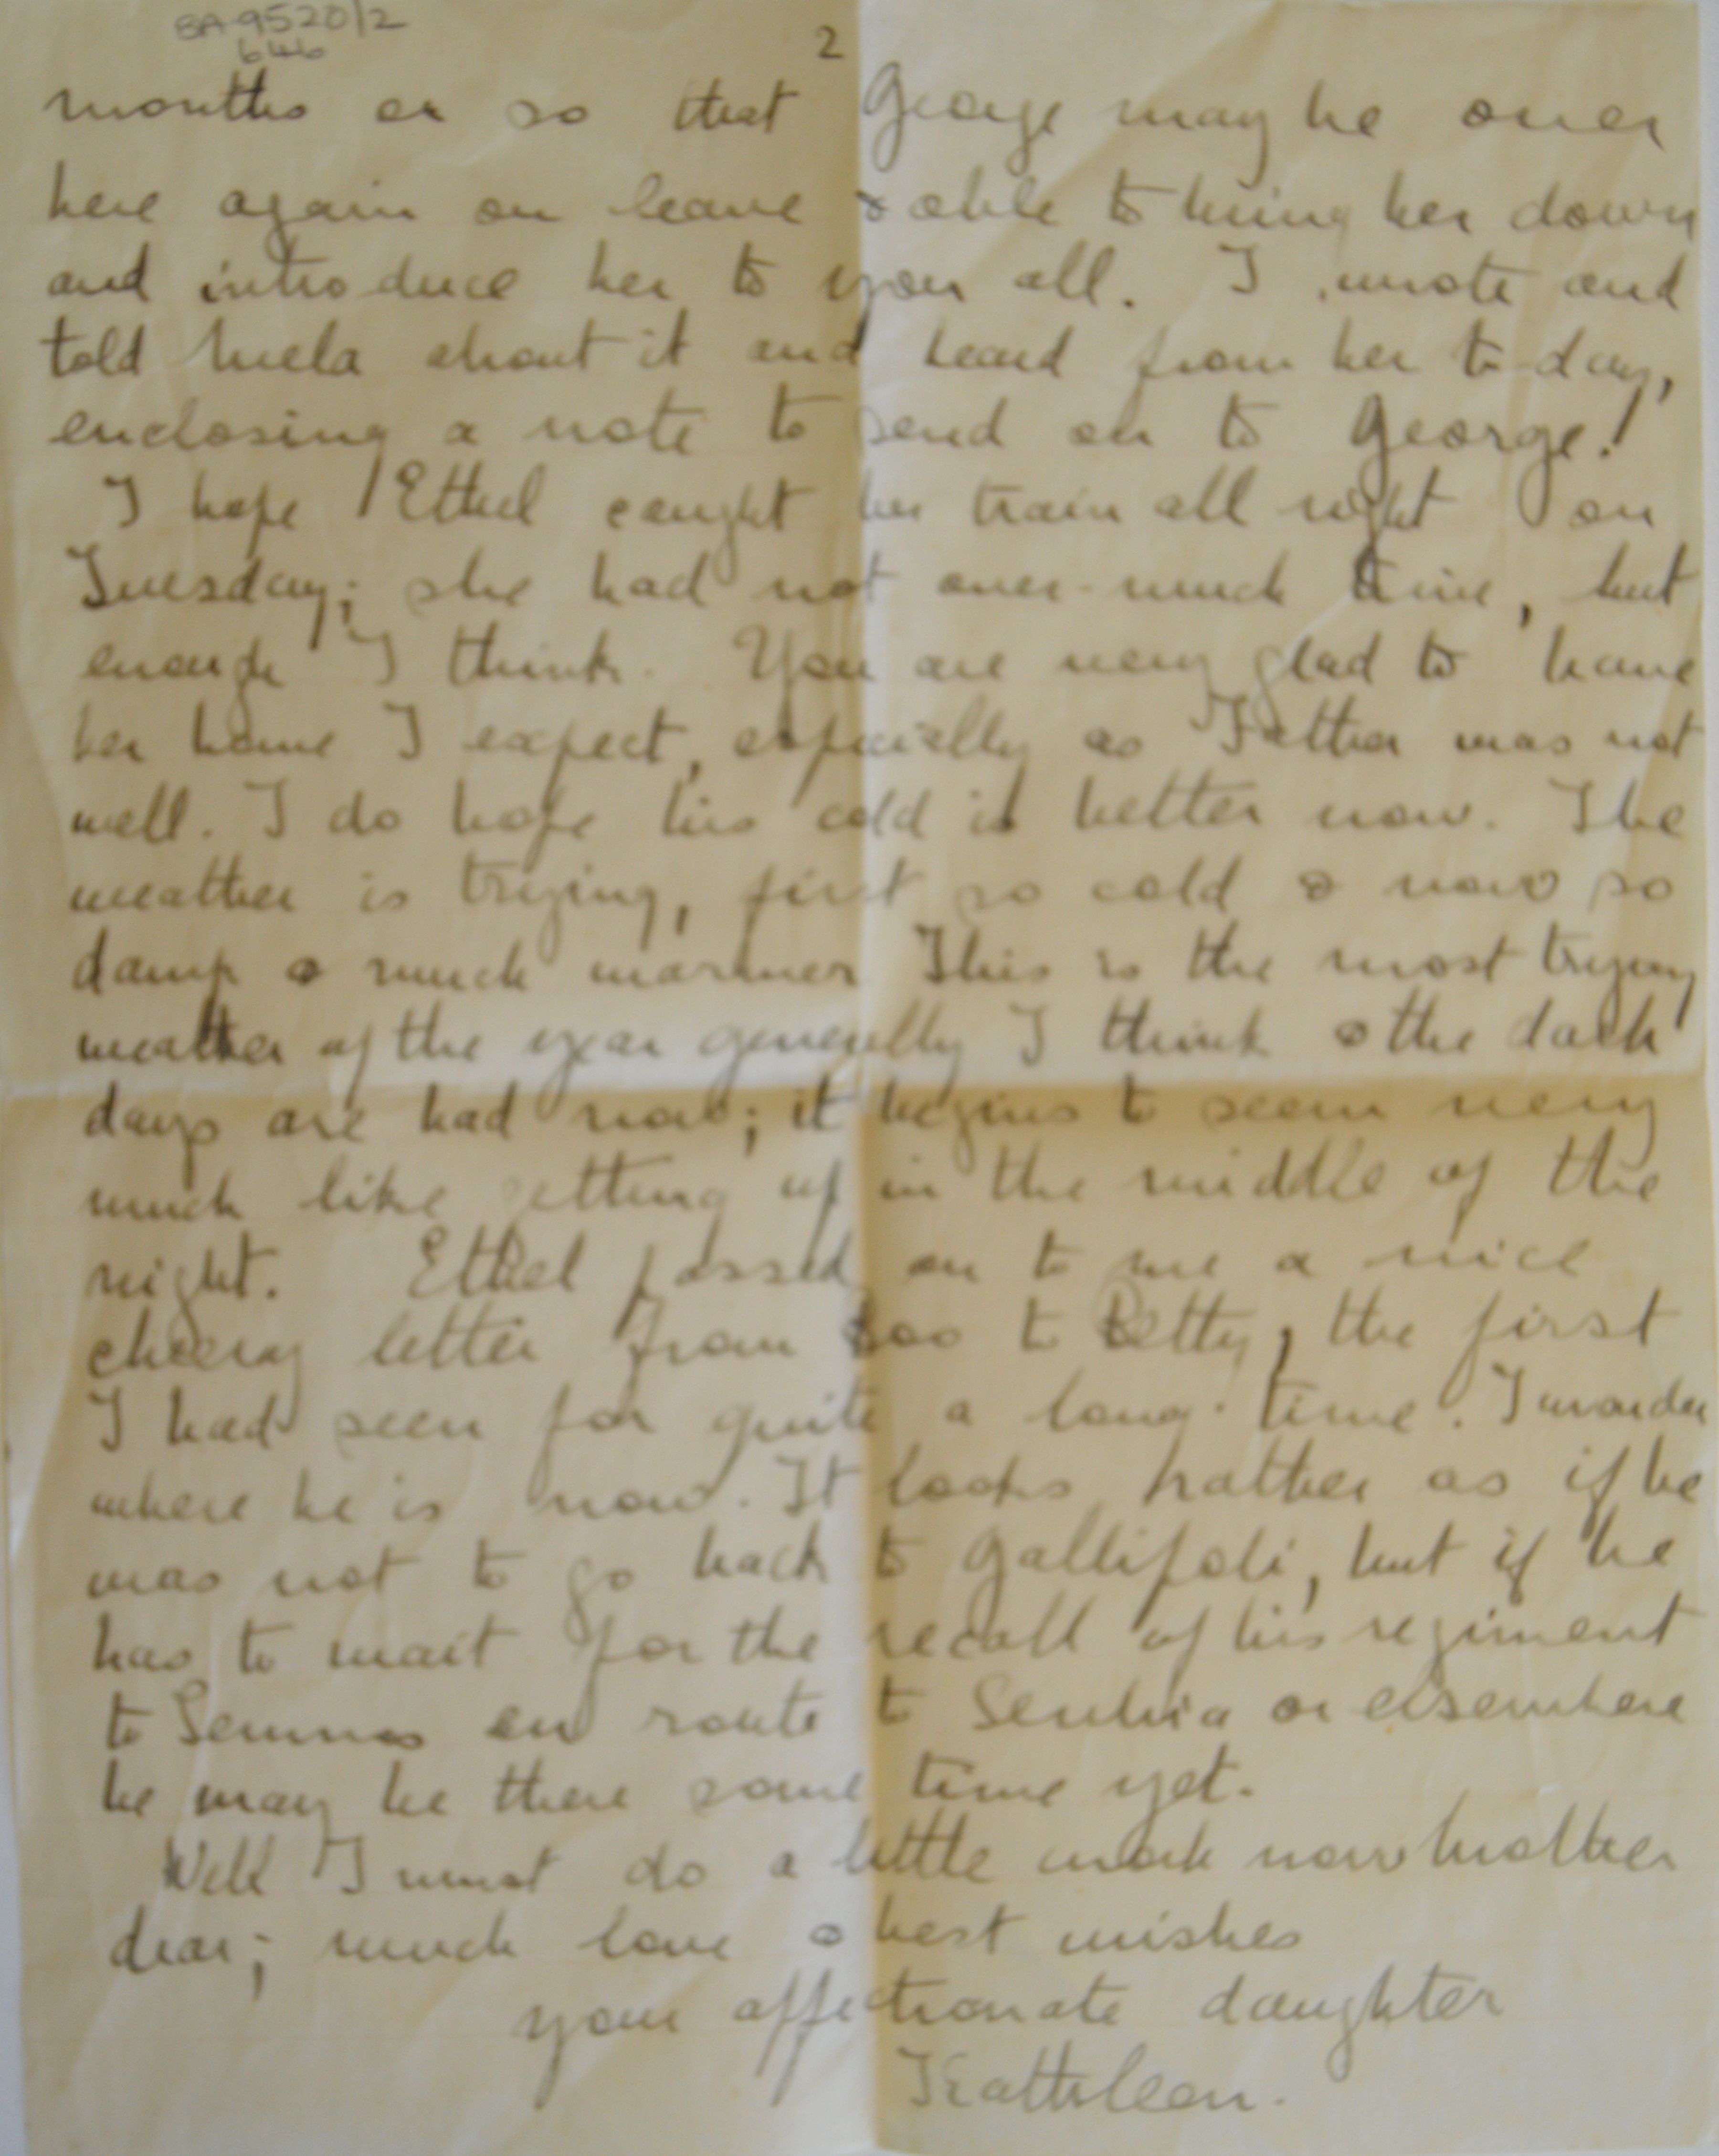 BA 9520/2
646
2
months or so that George may be over
here again on leave & able to bring her down
and introduce her to you all. I wrote and
told about it and heard from her to-day,
enclosing a note to send on to George!
I hope Ethel caught her train all right on
Tuesday; she had not over-much time, but
enough I think. You are very glad to have
her home I expect, especially as Father was not
well. I do hope his cold is better now. The
weather is trying, first so cold & now so
damp & much warmer. This is the most trying
weather of the year generally I think & the dark
days are bad now; it begins to seem very
much like getting up in the middle of the
night. Ethel passed on to me a nice
cheery letter from to Betty, the first
I had seen for quite a long time. I wonder
where he is now. It looks rather as if he
was not to go back to Gallipoli, but if he
has to wait for the recall of his regiment
to en route to Serbia or elsewhere
he may be there some time yet.
Well I must do a little work now Mother
dear; much love & best wishes
your affectionate daughter
Kathleen.